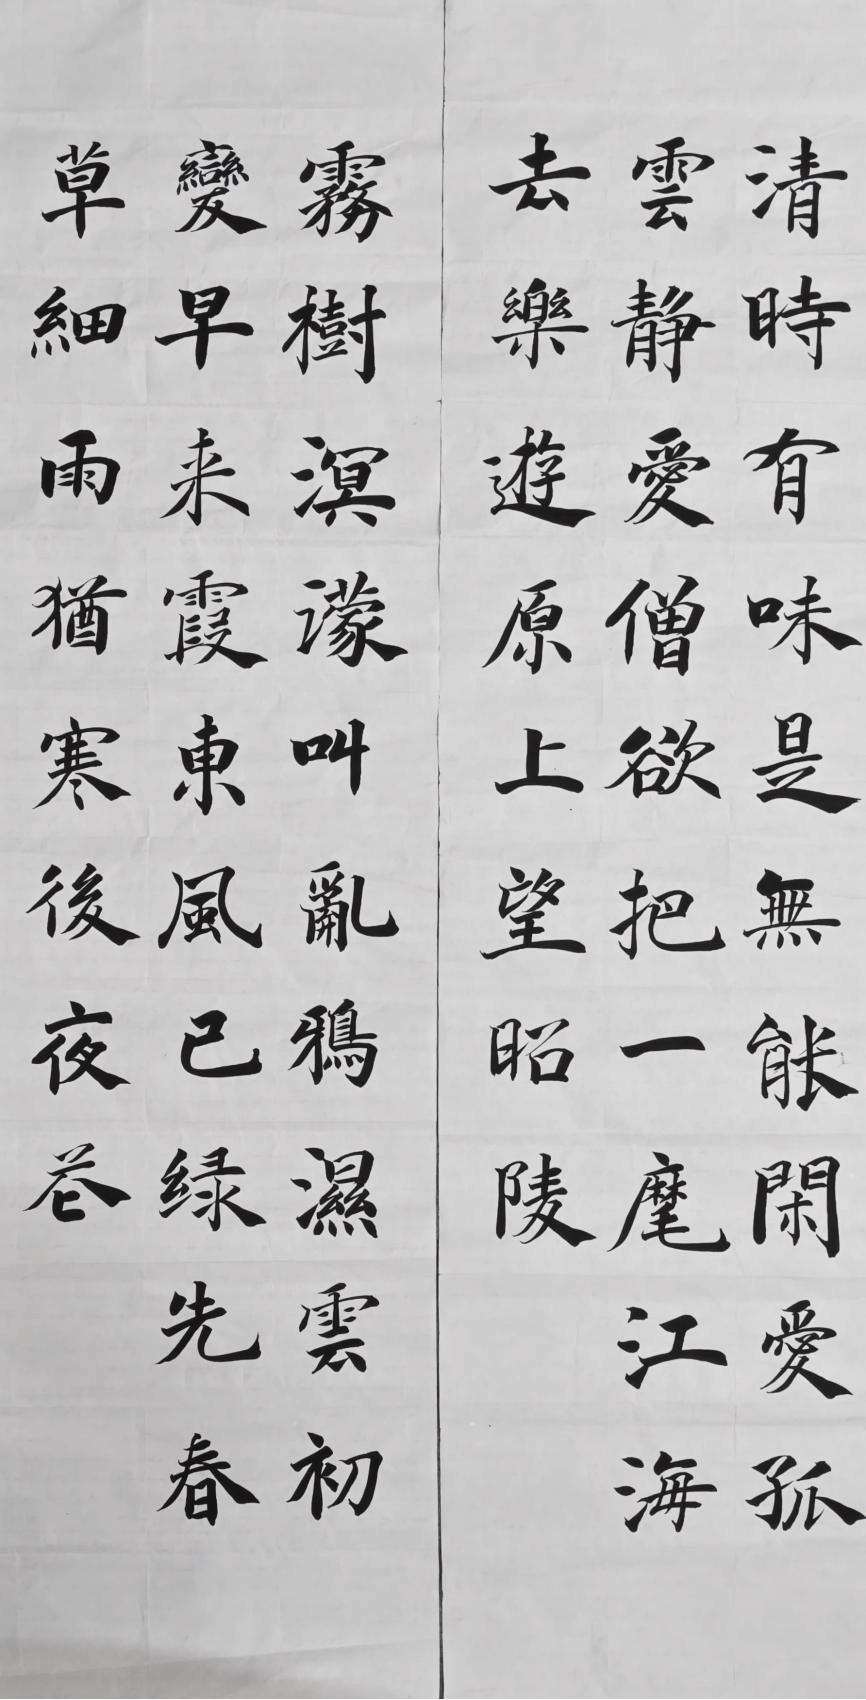 清時有味是無能閑愛孤
雲静愛僧欲把一麾江海
去樂遊原上望昭陵
霧樹溟濛叫亂鴉濕雲初
變早来霞東風已绿先春
草細雨猶寒後夜花